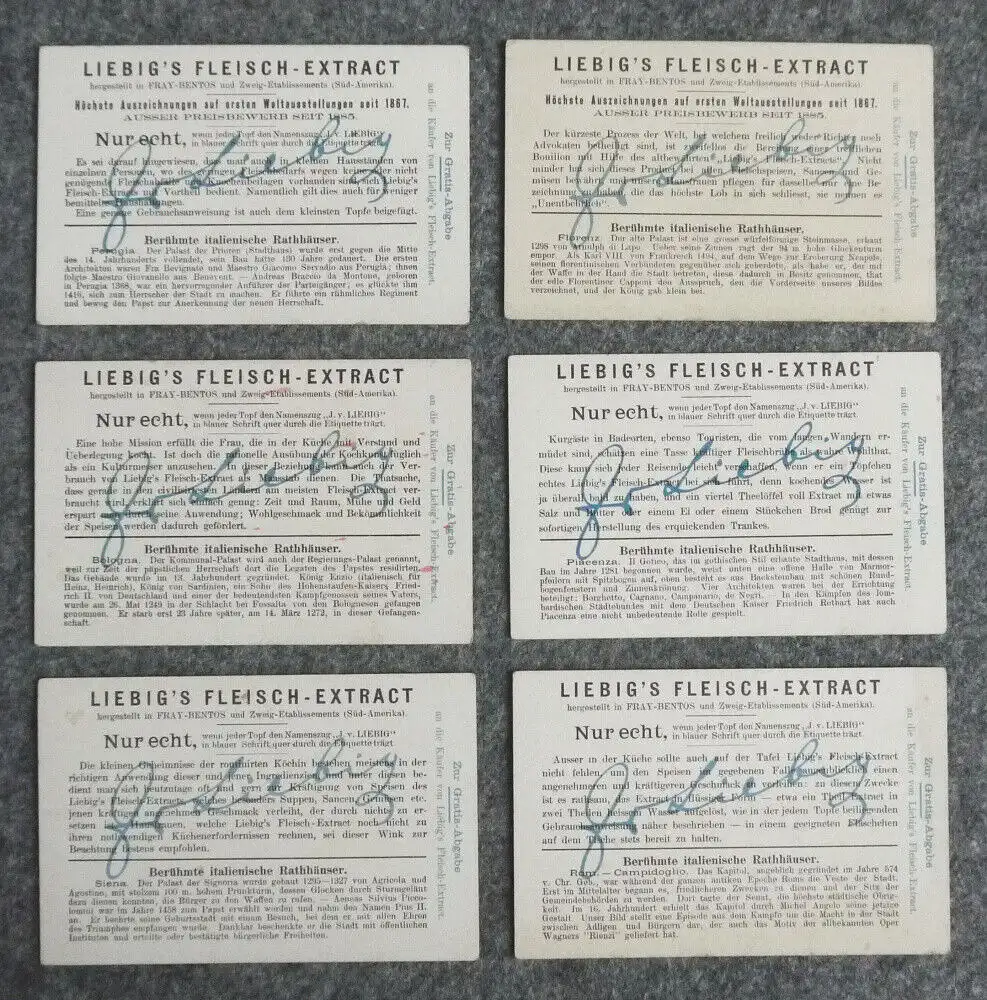 LIEBIG'S FLEISCH-EXTRACT
hergestellt in FRAY-BENTOS und Zweig-Etablissements (Süd-Amerika).
Höchste Auszeichnungen auf ersten Weltausstellungen seit 1867.
AUSSER PREISBEWERB SEIT 1885.
Nur echt, wenn jeder Topf den Namenszug „J. v. LIEBIG"
in blauer Schrift quer durch die Etiquette trägt.
Es sei darauf hingewiesen, dass man auch in kleinen Hausständen von
einzelnen Personen, wo des geringen Fleischbedarfs wegen keine oder nicht
genügende Fleischabfälle und Knochenbeilagen vorhanden sind, sich Liebig's
Fleisch-Extract mit Vortheil bedient. Namentlich gilt dies auch für weniger
bemittelte Haushaltungen.
Eine genaue Gebrauchsanweisung ist auch dem kleinsten Topfe beigefügt.
Berühmte italienische Rathhäuser.
Perugia. Der Palast der Prioren (Stadthaus) wurde erst gegen die Mitte
des 14. Jahrhunderts vollendet, sein Bau hatte 130 Jahre gedauert. Die ersten
Architekten waren Fra Bevignate und Maestro Giacomo Servadio aus Perugia; ihnen
folgte Maestro Giovanello aus Benevent. — Andreas Braccio da Montone, geboren
in Perugia 1368, war ein hervorragender Anführer der Parteigänger; es glückte ihm
1416, sich zum Herrscher der Stadt zu machen. Er führte ein rühmliches Regiment
und bewog den Papst zur Anerkennung der neuen Herrschaft.
Zur Gratis-Abgabe
an die Käufer von Liebig's Fleisch-Extract.
J v Liebig
LIEBIG'S FLEISCH-EXTRACT
hergestellt in FRAY-BENTOS und Zweig-Etablissements (Süd-Amerika).
Höchste Auszeichnungen auf ersten Weltausstellungen seit 1867.
AUSSER PREISBEWERB SEIT 1885.
Der kürzeste Prozess der Welt, bei welchem freilich weder Richter noch
Advokaten betheiligt sind, ist zweifellos die Bereitung einer trefflichen
Bouillon mit Hilfe des altbewährten „Liebig's Fleisch-Extracts". Nicht
minder hat sich dieses Product bei Fleischspeisen, Saucen und Ge-
müsen bewährt und unsere Hausfrauen pflegen für dasselbe nur eine Be-
zeichnung zu haben, die das höchste Lob in sich schliesst, sie nennen es
„Unentbehrlich".
Berühmte italienische Rathhäuser.
Florenz. Der alte Palast ist eine grosse würfelförmige Steinmasse, erbaut
1298 von Arnolph di Lapo. Ueber seine Zinnen ragt der 94 m hohe Glockenturm
empor. Als Karl VIII. von Frankreich 1494, auf dem Wege zur Eroberung Neapels,
seinen florentinischen Verbündeten gegenüber sich geberdete, als habe er, der mit
der Waffe in der Hand die Stadt betrete, diese dadurch in Besitz genommen, that
der edle Florentiner Capponi den Ausspruch, den die Vorderseite unseres Bildes
verzeichnet, und der König gab klein bei.
Zur Gratis-Abgabe
an die Käufer von Liebig's Fleisch-Extract.
J v Liebig
LIEBIG'S FLEISCH-EXTRACT
hergestellt in FRAY-BENTOS und Zweig-Etablissements (Süd-Amerika).
Nur echt, wenn jeder Topf den Namenszug „J. v. LIEBIG"
in blauer Schrift quer durch die Etiquette trägt.
Eine hohe Mission erfüllt die Frau, die in der Küche mit Verstand und
Ueberlegung kocht. Ist doch die rationelle Ausübung der Kochkunst füglich
als ein Kulturmesser anzusehen. In dieser Beziehung kann auch der Ver-
brauch von Liebig's Fleisch-Extract als Massstab dienen. Die Thatsache,
dass gerade in den civilisirtesten Ländern am meisten Fleisch-Extract ver-
braucht wird, erklärt sich einfach genug: Zeit und Raum, Mühe und Geld
erspart man durch seine Anwendung; Wohlgeschmack und Bekömmlichkeit
der Speisen werden dadurch gefördert.
Berühmte italienische Rathhäuser.
Bologna. Der Kommunal-Palast wird auch der Regierungs-Palast genannt,
weil zur Zeit der päpstlichen Herrschaft dort die Legaten des Papstes residirten.
Das Gebäude wurde im 13. Jahrhundert gegründet. König Enzio (italienisch für
Heinz, Heinrich), König von Sardinien, ein Sohn des Hohenstaufen-Kaisers Fried-
rich II. von Deutschland und einer der bedeutendsten Kampfgenossen seines Vaters,
wurde am 26. Mai 1249 in der Schlacht bei Fossalta von den Bolognesen gefangen
genommen. Er starb erst 23 Jahre später, am 14. März 1272, in dieser Gefangen-
schaft.
Zur Gratis-Abgabe
an die Käufer von Liebig's Fleisch-Extract.
J v Liebig
LIEBIG'S FLEISCH-EXTRACT
hergestellt in FRAY-BENTOS und Zweig-Etablissements (Süd-Amerika).
Nur echt, wenn jeder Topf den Namenszug „J. v. LIEBIG"
in blauer Schrift quer durch die Etiquette trägt.
Kurgäste in Badeorten, ebenso Touristen, die vom langen Wandern er-
müdet sind, empfinden eine Tasse kräftiger Fleischbrühe als wahre Wohlthat.
Diese kann sich jeder Reisende leicht verschaffen, wenn er ein Töpfchen
echtes Liebig's Fleisch-Extract bei sich führt, denn kochendes Wasser ist
ja überall bald zu haben, und ein viertel Theelöffel voll Extract mit etwas
Salz und Butter oder einem Ei oder einem Stückchen Brod genügt zur
sofortigen Herstellung des erquickenden Trankes.
Berühmte italienische Rathhäuser.
Piacenza. Il Gotico, das im gothischen Stil erbaute Stadthaus, mit dessen
Bau im Jahre 1281 begonnen wurde, weist unten eine offene Halle von Marmor-
pfeilern mit Spitzbogen auf, oben besteht es aus Backsteinbau mit schönen Rund-
bogenfenstern und Zinnenkrönung. Vier Architekten waren bei der Errichtung
beteiligt: Borghetto, Cagnano, Campanario, de Negri. — In den Kämpfen des lom-
bardischen Städtebundes mit dem Deutschen Kaiser Friedrich Rotbart hat auch
Piacenza eine nicht unbedeutende Rolle gespielt.
Zur Gratis-Abgabe
an die Käufer von Liebig's Fleisch-Extract.
J v Liebig
LIEBIG'S FLEISCH-EXTRACT
hergestellt in FRAY-BENTOS und Zweig-Etablissements (Süd-Amerika).
Nur echt, wenn jeder Topf den Namenszug „J. v. LIEBIG"
in blauer Schrift quer durch die Etiquette trägt.
Die kleinen Geheimnisse der routinirten Köchin beruhen meistens in der
richtigen Anwendung dieser und jener Ingredienzien und unter diesen be-
dient man sich heutzutage oft und gern zur Kräftigung von Speisen des
Liebig's Fleisch-Extracts, welches besonders Suppen, Saucen, Gemüsen etc.
jenen kräftigen, angenehmen Geschmack verleiht, der durch nichts zu er-
setzen ist. Hausfrauen, welche Liebig's Fleisch-Extract noch nicht zu
ihren notwendigen Küchenerfordernissen rechnen, sei dieser Wink zur
Beachtung bestens empfohlen.
Berühmte italienische Rathhäuser.
Siena. Der Palast der Signoria wurde gebaut 1295—1327 von Agricola und
Agostino, mit stolzem 100 m. hohem Prunkturm, dessen Glocken durch Sturmgeläut
dazu dienen konnten, die Bürger zu den Waffen zu rufen. — Aeneas Silvius Picco-
lomini war im Jahre 1458 zum Papst erwählt worden und nahm den Namen Pius II.
an. Er beehrte seine Geburtsstadt mit einem Besuch, bei dem er mit allen Ehren
des Triumphes empfangen wurde. Dankbar beschenkte er die Stadt mit öffentlichen
Instituten und erteilte oder bestätigte bürgerliche Freiheiten.
Zur Gratis-Abgabe
an die Käufer von Liebig's Fleisch-Extract.
J v Liebig
LIEBIG'S FLEISCH-EXTRACT
hergestellt in FRAY-BENTOS und Zweig-Etablissements (Süd-Amerika).
Nur echt, wenn jeder Topf den Namenszug „J. v. LIEBIG"
in blauer Schrift quer durch die Etiquette trägt.
Ausser in der Küche sollte auch auf der Tafel Liebig's Fleisch-Extract
nicht fehlen, um den Speisen im gegebenen Falle augenblicklich einen
angenehmen und kräftigeren Geschmack zu verleihen: zu diesem Zwecke
ist es ratsam, das Extract in flüssiger Form — etwa ein Teil Extract in
zwei Theilen heissen Wassers aufgelöst, wie in der jedem Topfe beiliegenden
Gebrauchsanweisung näher beschrieben — in einem geeigneten Fläschchen
auf dem Tische stets bereit zu halten.
Berühmte italienische Rathhäuser.
Rom — Campidoglio. Das Kapitol, angeblich gegründet im Jahre 574
v. Chr. Geb., war während der ganzen antiken Epoche Roms die Veste der Stadt.
Erst im Mittelalter begann es, friedlicheren Zwecken zu dienen und der Sitz der
Gemeindebehörden zu werden. Dort tagte der Senat, die höchste städtische Obrig-
keit. Im 16. Jahrhundert erhielt das Kapitol durch Michel Angelo seine jetzige
Gestalt. Unser Bild stellt eine Episode aus dem Kampfe um die Macht in der Stadt
zwischen Adligen und Bürgern dar, der auch das Motiv der altbekannten Oper
Wagners "Rienzi" geliefert hat.
Zur Gratis-Abgabe
an die Käufer von Liebig's Fleisch-Extract.
J v Liebig